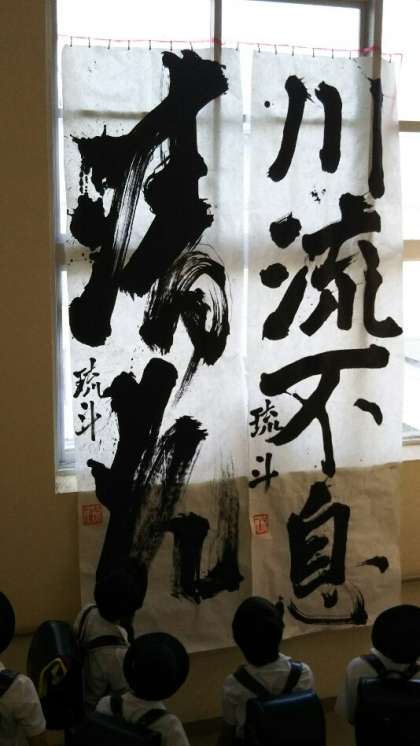 川流不息
琉斗
れ
琉斗